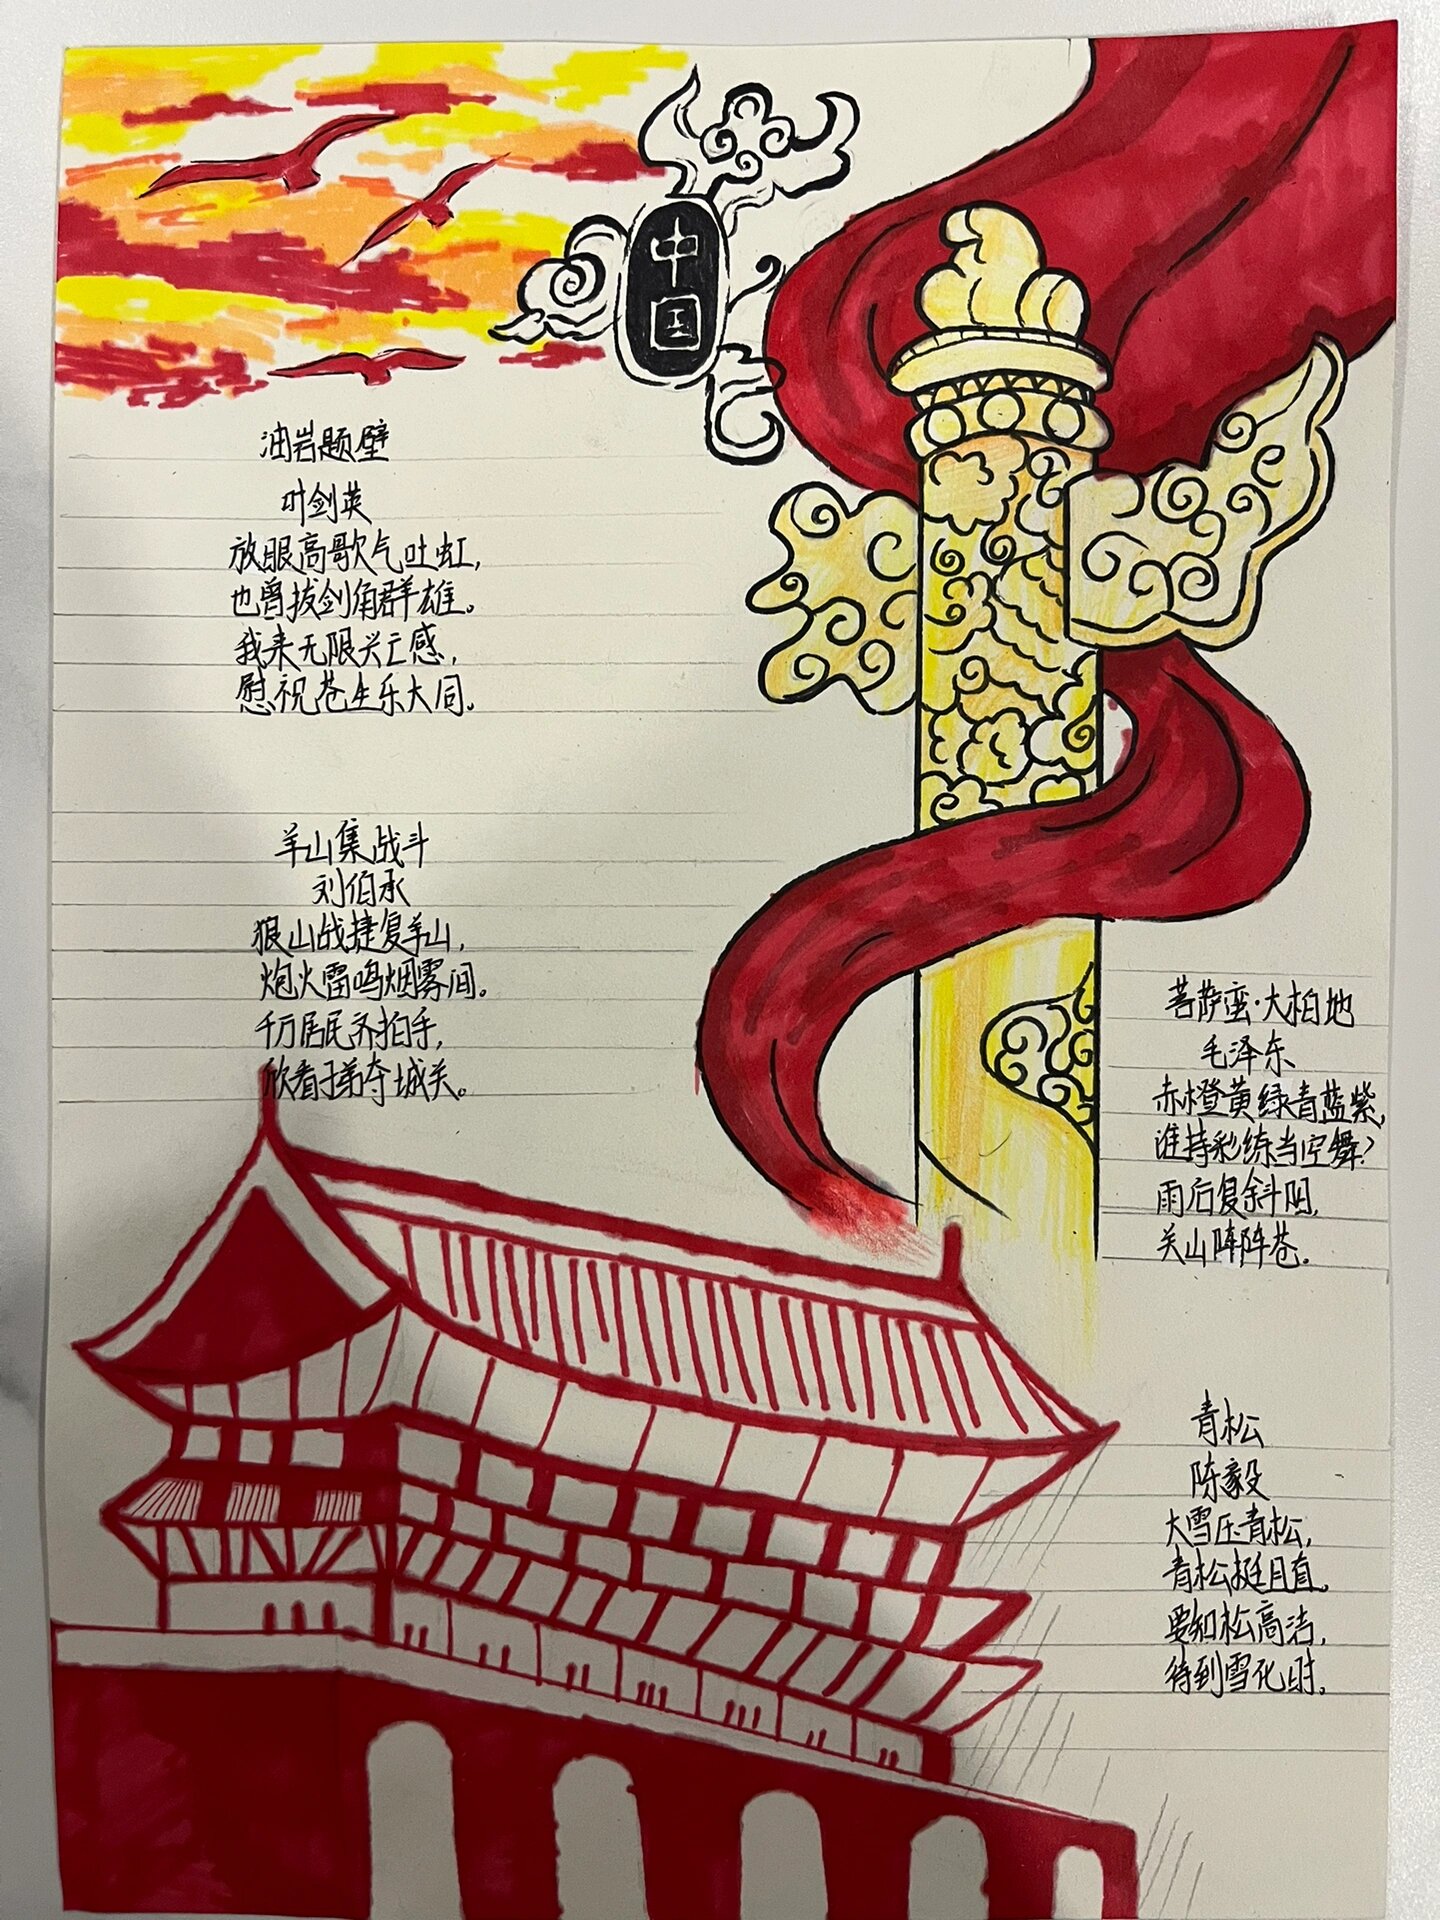 中国
油岩题壁
叶剑英
放眼高歌气吐虹，
也曾拔剑角群雄。
我来无限兴亡感，
慰祝苍生乐大同。
羊山集战斗
刘伯承
狼山战捷复羊山，
炮火雷鸣烟雾间。
千万居民齐拍手，
欣看子弟夺城关。
菩萨蛮·大柏地
毛泽东
赤橙黄绿青蓝紫，
谁持彩练当空舞？
雨后复斜阳，
关山阵阵苍。
青松
陈毅
大雪压青松，
青松挺且直。
要知松高洁，
待到雪化时。